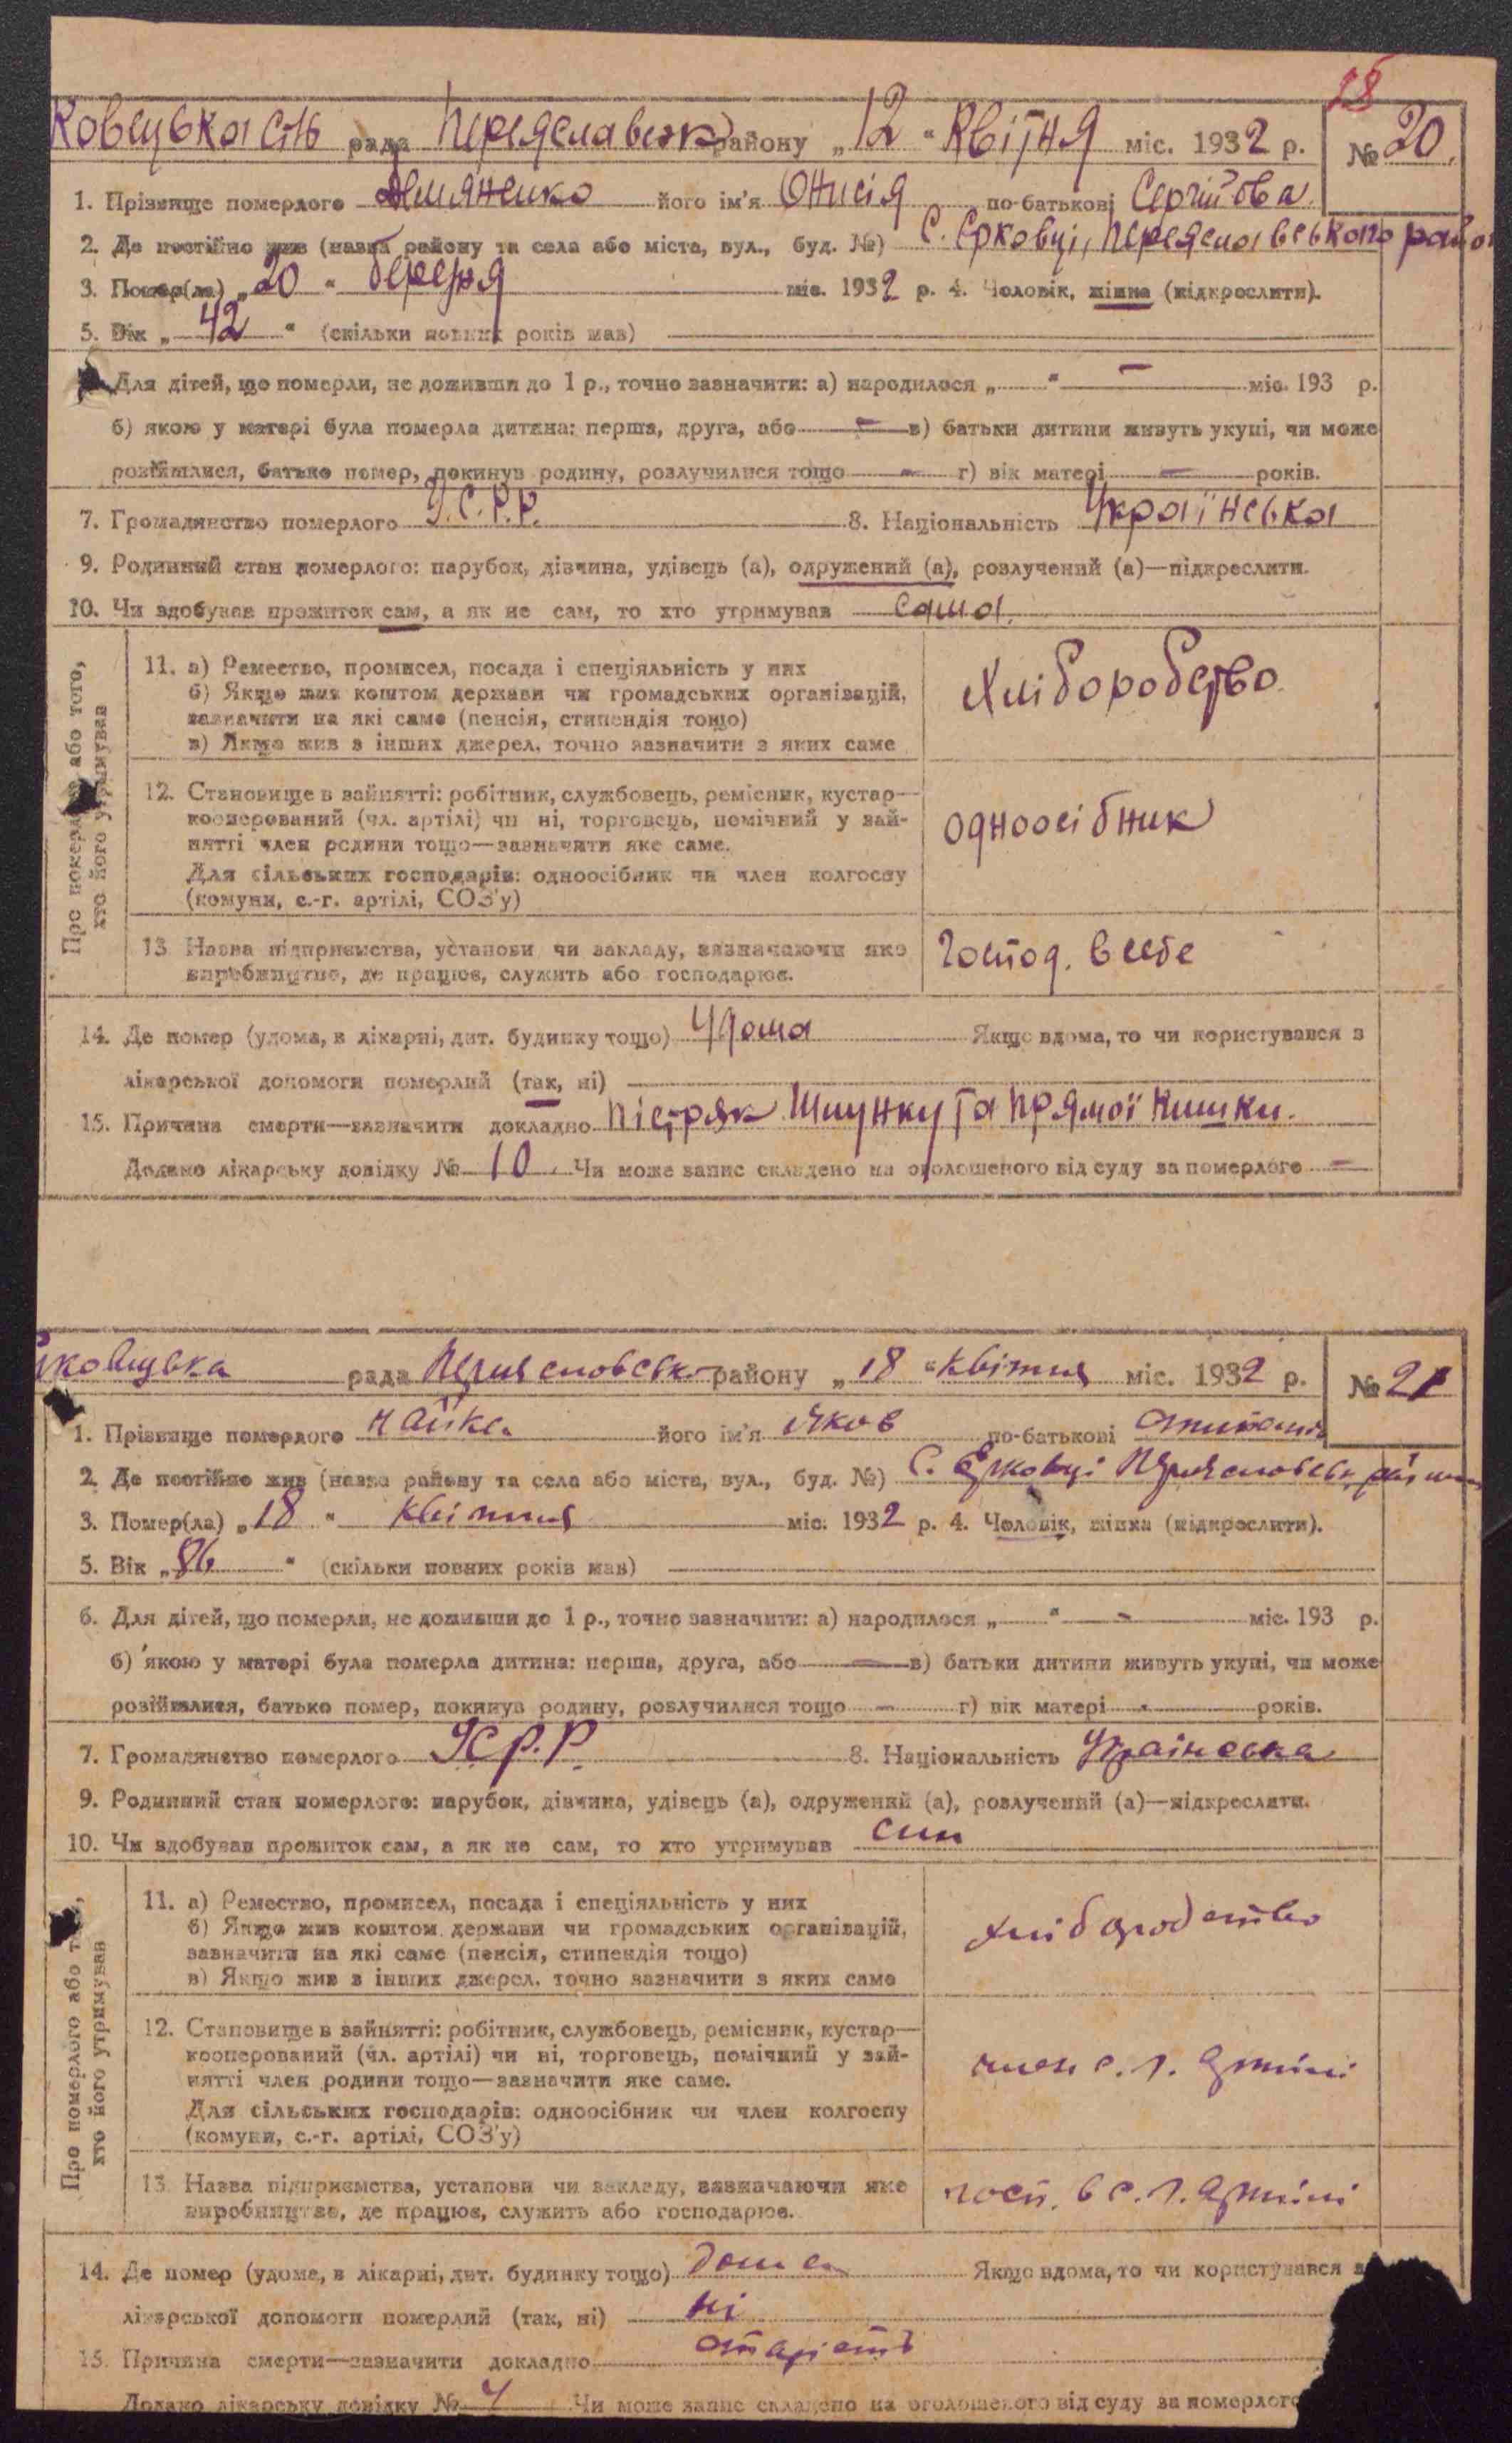 18
Ковецька сіль рада Переяславськ району „12“ Квітня міс. 1932 р. № 20.
1. Прізвище померлого Демяненко його ім'я Онисія по-батькові Сергійова
2. Де постійно жив (назва району та села або міста, вул., буд. №) с. Єрковці, Переяславського район
3. Помер(ла) „20“ березня міс. 1932 р. 4. Чоловік, жінка (підкреслити).
5. Вік „42“ (скільки повних років мав)
Для дітей, що померли, не доживши до 1 р., точно зазначити: а) народилося „ “ — міс. 193 р.
б) якою у матері була померла дитина: перша, друга, або — в) батьки дитини живуть укупі, чи може
розійшлися, батько помер, покинув родину, розлучилися тощо — г) вік матері — років.
7. Громадянство померлого У.С.Р.Р. 8. Національність Українська
9. Родинний стан померлого: парубок, дівчина, удівець (а), одружений (а), розлучений (а)—підкреслити.
10. Чи здобував прожиток сам, а як не сам, то хто утримував сама.
Про померлого або того,
хто його утримував
11. а) Ремество, промисел, посада і спеціяльність у них
б) Якщо жив коштом держави чи громадських організацій,
зазначити на які саме (пенсія, стипендія тощо)
в) Якщо жив з інших джерел, точно зазначити з яких саме
Хліборобство
12. Становище в зайнятті: робітник, службовець, ремісник, кустар—
кооперований (чл. артілі) чи ні, торговець, помічний у зай-
нятті член родини тощо—зазначити яке саме.
Для сільських господарів: одноосібник чи член колгоспу
(комуни, с.-г. артілі, СОЗ'у)
одноосібник
13. Назва підприємства, установи чи закладу, зазначаючи яке
виробництво, де працює, служить або господарює.
Господ. в себе
14. Де помер (удома, в лікарні, дит. будинку тощо) Удома Якщо вдома, то чи користувався з
лікарської допомоги померлий (так, ні)
15. Причина смерти—зазначити докладно Пістряк шлунку та прямої кишки.
Додано лікарську довідку № 10. Чи може запис складено на оголошеного від суду за померлого —
рада Переяславськ району „18“ квітня міс. 1932 р. № 21
1. Прізвище померлого Чайка його ім'я Яков по-батькові
2. Де постійно жив (назва району та села або міста, вул., буд. №) с. Єрковці Переяславськ району
3. Помер(ла) „18“ квітня міс. 1932 р. 4. Чоловік, жінка (підкреслити).
5. Вік „86“ (скільки повних років мав)
6. Для дітей, що померли, не доживши до 1 р., точно зазначити: а) народилося „ “ — міс. 193 р.
б) якою у матері була померла дитина: перша, друга, або — в) батьки дитини живуть укупі, чи може
розійшлися, батько помер, покинув родину, розлучилися тощо — г) вік матері — років.
7. Громадянство померлого УСР.Р. 8. Національність Українська
9. Родинний стан померлого: парубок, дівчина, удівець (а), одружений (а), розлучений (а)—підкреслити.
10. Чи здобував прожиток сам, а як не сам, то хто утримував син
Про померлого або
хто його утримував
11. а) Ремество, промисел, посада і спеціяльність у них
б) Якщо жив коштом держави чи громадських організацій,
зазначити на які саме (пенсія, стипендія тощо)
в) Якщо жив з інших джерел, точно зазначити з яких саме
хліборобство
12. Становище в зайнятті: робітник, службовець, ремісник, кустар—
кооперований (чл. артілі) чи ні, торговець, помічний у зай-
нятті член родини тощо—зазначити яке саме.
Для сільських господарів: одноосібник чи член колгоспу
(комуни, с.-г. артілі, СОЗ'у)
член с. г. артілі
13. Назва підприємства, установи чи закладу, зазначаючи яке
виробництво, де працює, служить або господарює.
госп. в с. г. артілі
14. Де помер (удома, в лікарні, дит. будинку тощо) дома Якщо вдома, то чи користувався з
лікарської допомоги померлий (так, ні) ні
15. Причина смерти—зазначити докладно старість
Додано лікарську довідку № 4 Чи може запис складено на оголошеного від суду за померлого